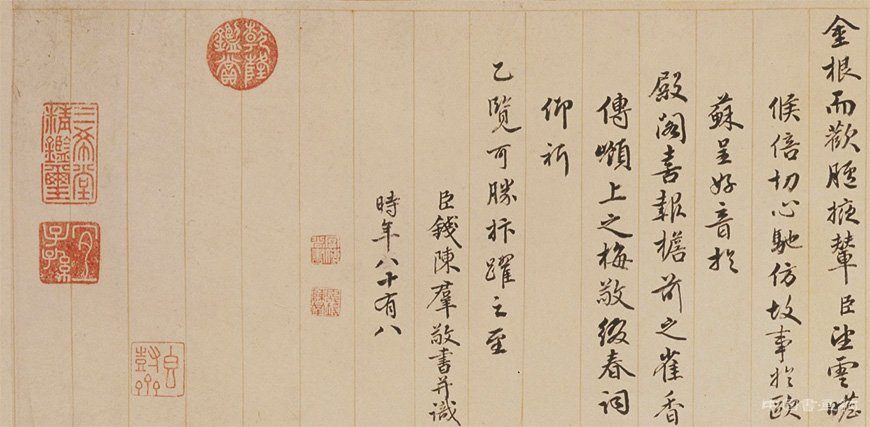 金根而歡臚掖輦臣望雲曕
候倍切心馳仿故事於歐
蘇呈好音於
殿閣喜報檐前之雀香
傳嶺上之梅敬綴春詞
仰祈
乙覽可勝抃躍之至
臣錢陳羣敬書并識
時年八十有八
乾隆鑑賞
三希堂精鑑璽
宜子孫